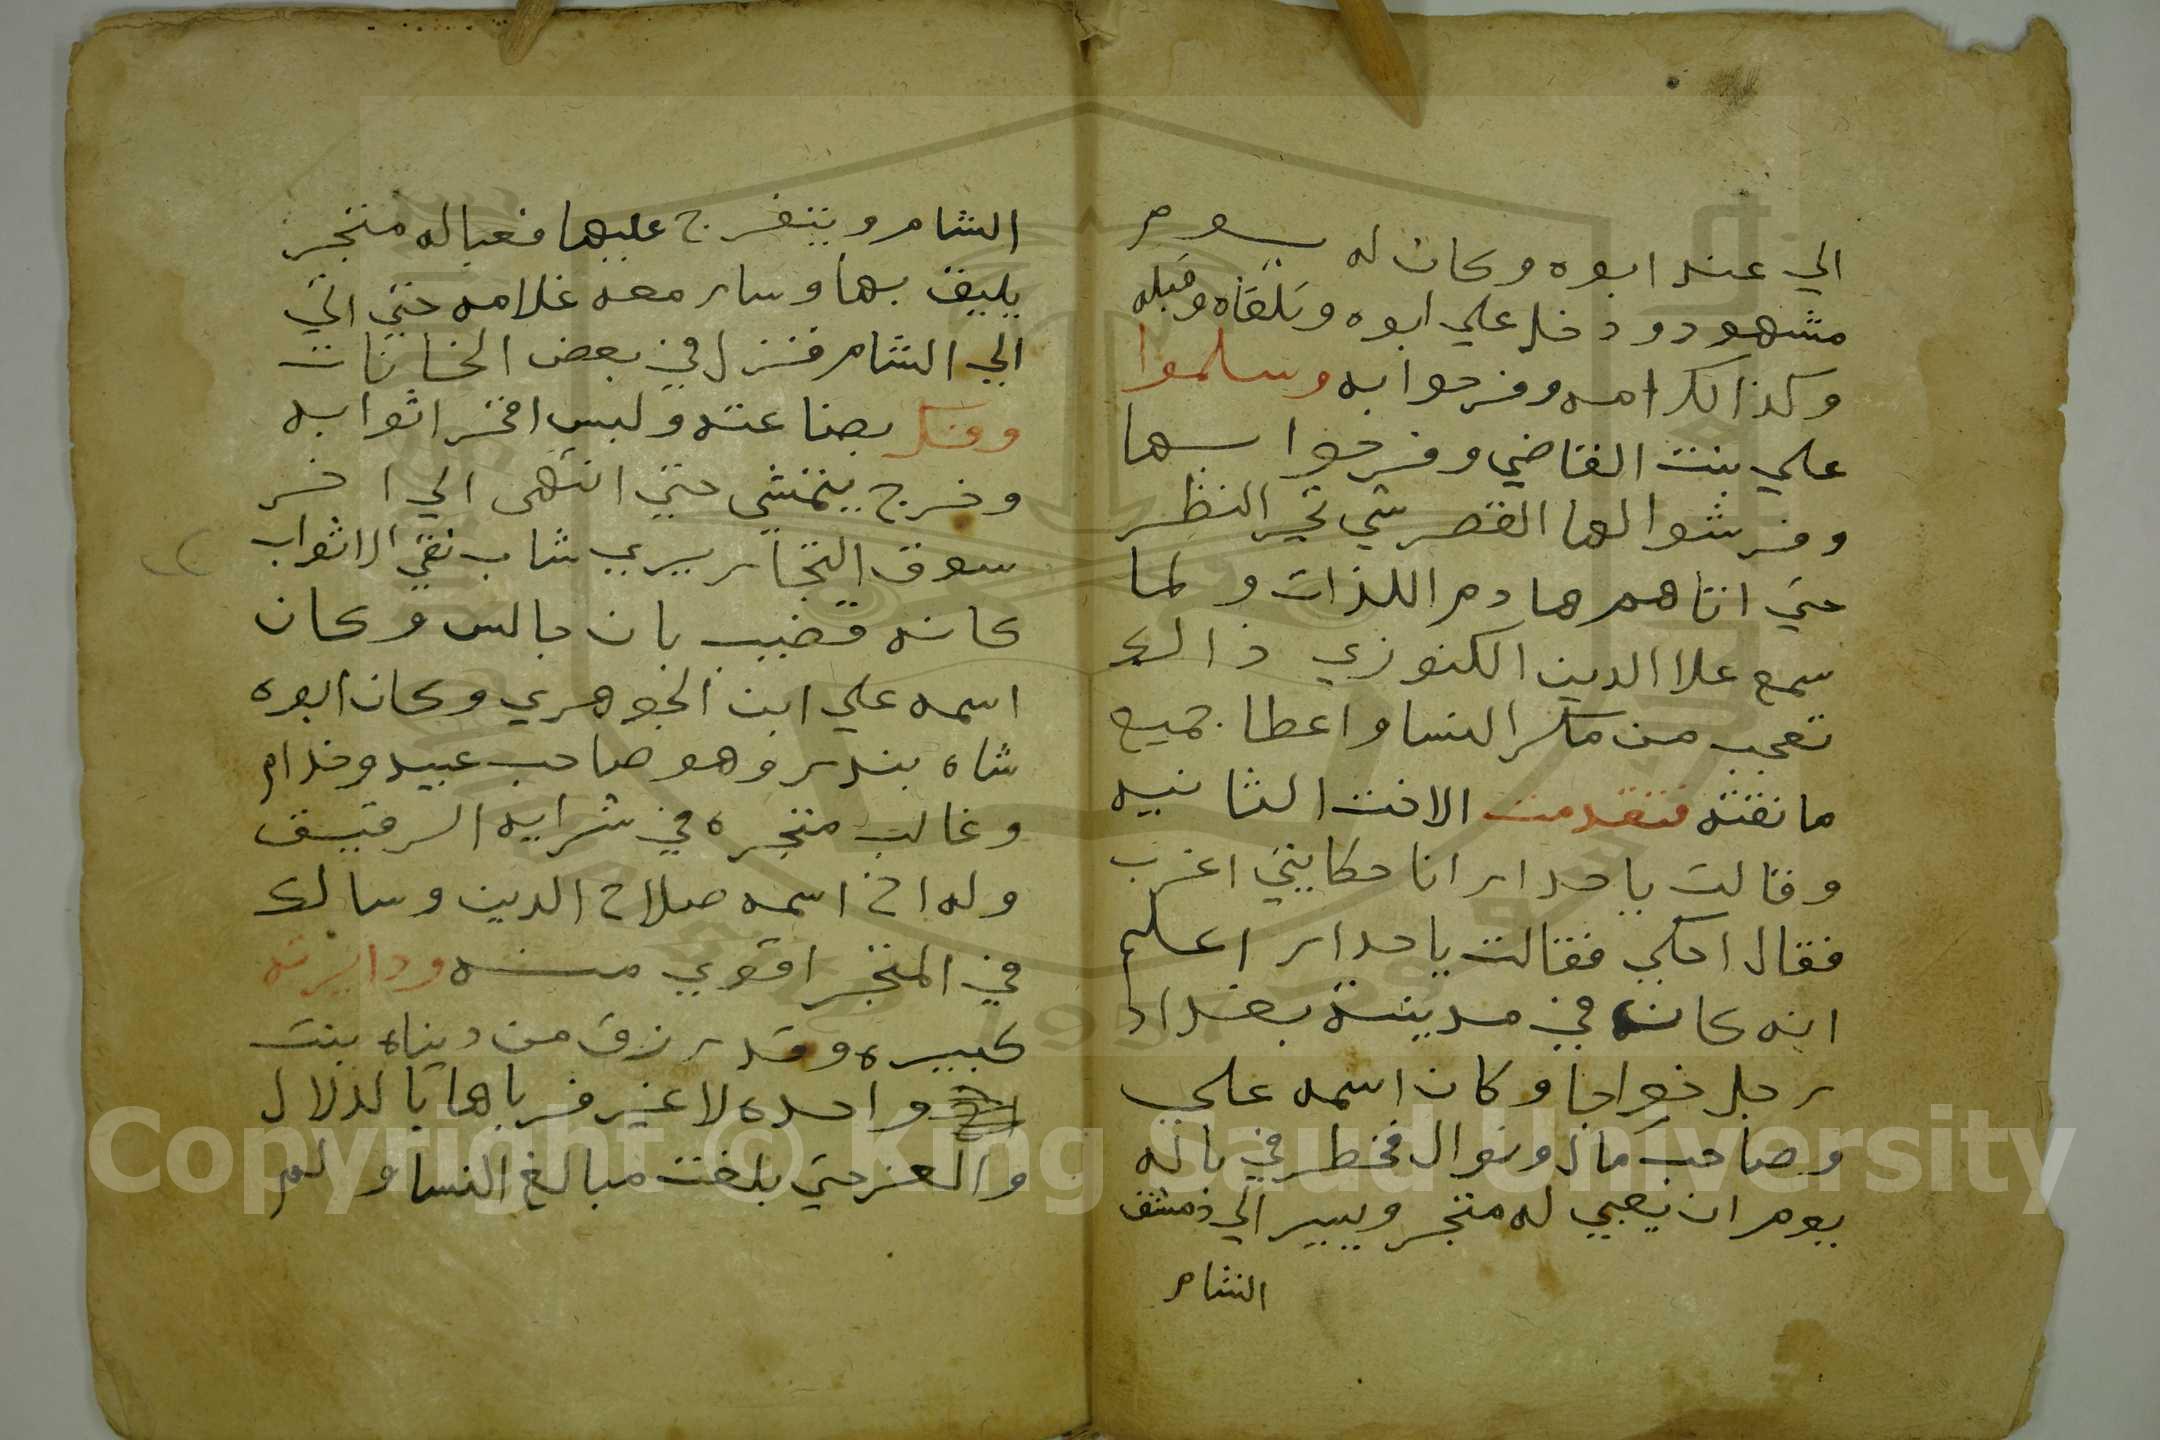 الي عند ابوه وكان له يوم
مشهود ودخل علي ابوه وتلقاه وقبله
وكذالك امه وفرحوا به وسلموا
علي بنت القاضي وفرحوا بها
وفرشوا لها القصر شي تحير النظر
حتي اتاهم هادم اللذات ولما
سمع علا الدين الكنوزي ذالك
تعجب من مكر النسا واعطا جميع
ما نقته فتقدمت الاخت الثانيه
وقالت يا حدار انا حكايتي اغرب
فقال احكي فقالت يا حدار اعلم
انه كان في مدينة بغداد
رجل خواجا وكان اسمه علي
وصاحب مال ونوال فخطر في باله
يوم ان يعبي له متجر ويسير الي دمشق
الشام
الشام ويتفرج عليها فعبا له متجر
يليق بها وسار معه غلامه حتي اتي
الي الشام فنزل في بعض الخانات
وفك بضاعته ولبس افخر اثوابه
وخرج يتمشي حتي انتهى الي اخر
سوق التجار يري شاب نقي الاثواب
كانه قضيب بان جالس وكان
اسمه علي ابن الجوهري وكان ابوه
شاه بندر وهو صاحب عبيد وخدام
وغالب متجره في شرايه الرقيق
وله اخ اسمه صلاح الدين وسالك
في المتجر اقوي منه ودايرته
كبيره وقد رزق من دنياه بنت
واحده لا غير فرباها بالدلال
والعز حتي بلغت مبالغ النسا ولم
Copyright © King Saud University